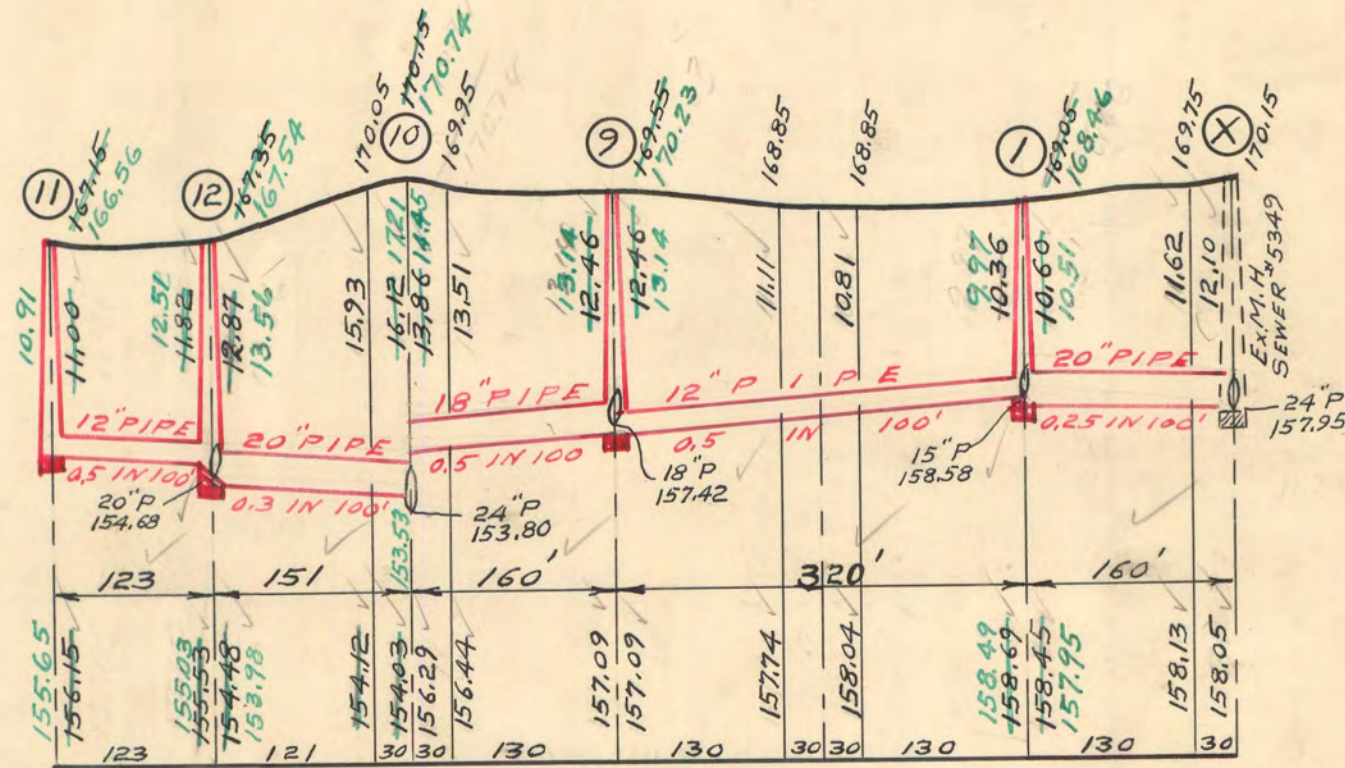 11
167.15
166.56
12
167.35
167.54
170.05
10
170.15
170.74
169.95
170.74
9
169.55
170.23
168.85
168.85
1
169.05
168.46
169.75
X
170.15
10.91
11.00
12.51
11.82
12.87
13.56
15.93
16.12 17.21
13.86 14.45
13.51
13.14
12.46
12.46
13.14
11.11
10.81
9.97
10.36
10.60
10.51
11.62
12.10
Ex. M. H.
SEWER #5349
12" PIPE
20" PIPE
18" PIPE
12" PIPE
20" PIPE
0.5 IN 100'
0.3 IN 100'
0.5 IN 100
0.5 IN 100'
0.25 IN 100'
20" P
154.68
24" P
153.80
18" P
157.42
15" P
158.58
24" P
157.95
153.53
123
151
160'
320'
160'
155.65
156.15
155.03
155.53
154.48
153.98
154.12
154.03
156.29
156.44
157.09
157.09
157.74
158.04
158.49
158.69
158.45
157.95
158.13
158.05
123
121
30
30
130
130
30
30
130
130
30